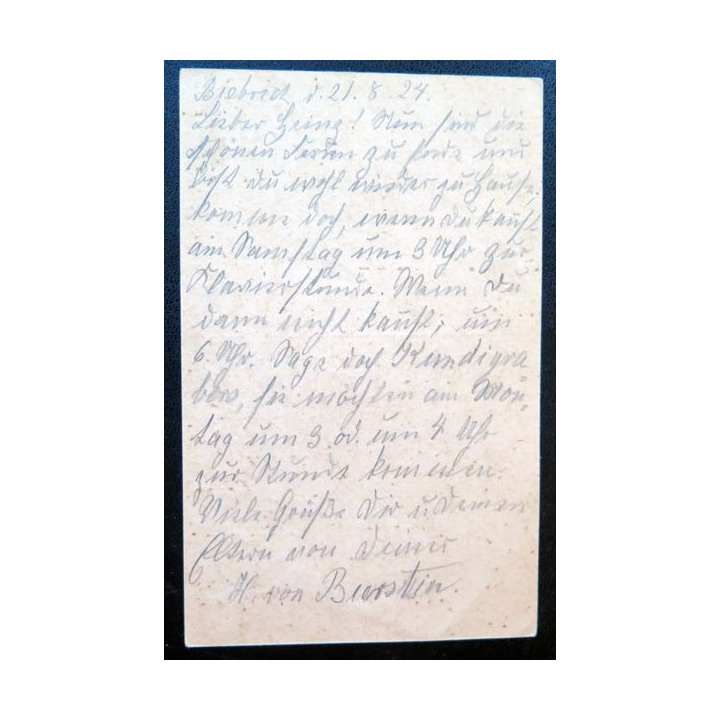 Biebrich, d. 21. 8. 24.
Lieber Heinz! Nun sind die
schönen Ferien zu Ende und
bist Du wohl wieder zu Hause,
komme doch, wenn Du kannst
am Samstag um 3 Uhr zur
Klavierstunde. Wenn Du
dann nicht kannst, um
6 Uhr. Sage doch
sie möchten am Mon-
tag um 3 od. um 4 Uhr
zur Stunde kommen.
Viele Grüße Dir u Deinen
Eltern von Deiner
H. von